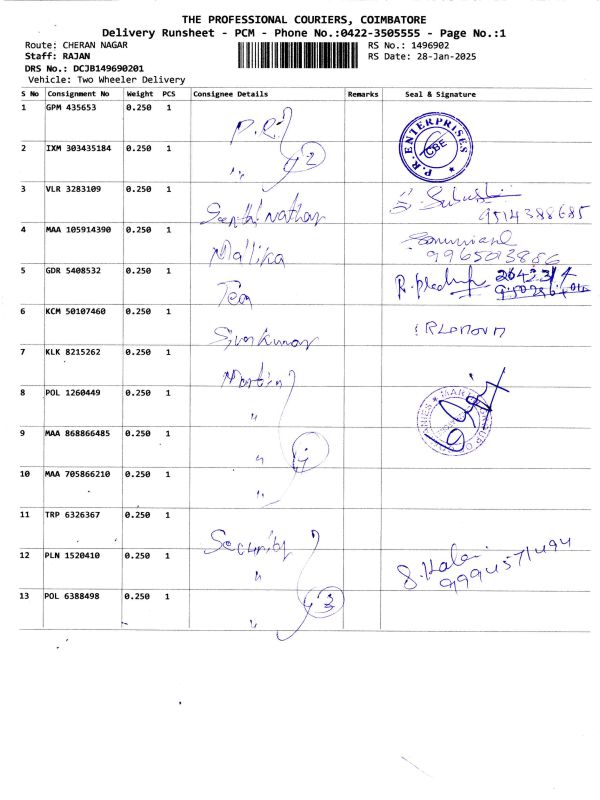 THE PROFESSIONAL COURIERS, COIMBATORE
Delivery Runsheet - PCM - Phone No.:0422-3505555 - Page No.:1
Route: CHERAN NAGAR
RS No.: 1496902
Staff: RAJAN
RS Date: 28-Jan-2025
DRS No.: DCJB149690201
Vehicle: Two Wheeler Delivery
S No Consignment No Weight PCS Consignee Details Remarks Seal & Signature
1 GPM 435653 0.250 1 P.R. P.R. ENTERPRISES CBE
2 IXM 303435184 0.250 1 " 2
3 VLR 3283109 0.250 1 Senthil nathan 9514388685
4 MAA 105914390 0.250 1 Mallika 9965013886
5 GDR 5408532 0.250 1 Tea
6 KCM 50107460 0.250 1 Sivakumar
7 KLK 8215262 0.250 1 Martin
8 POL 1260449 0.250 1 "
9 MAA 868866485 0.250 1 "
10 MAA 705866210 0.250 1 "
11 TRP 6326367 0.250 1 Security
12 PLN 1520410 0.250 1 " S. Kala 9994571494
13 POL 6388498 0.250 1 " 3